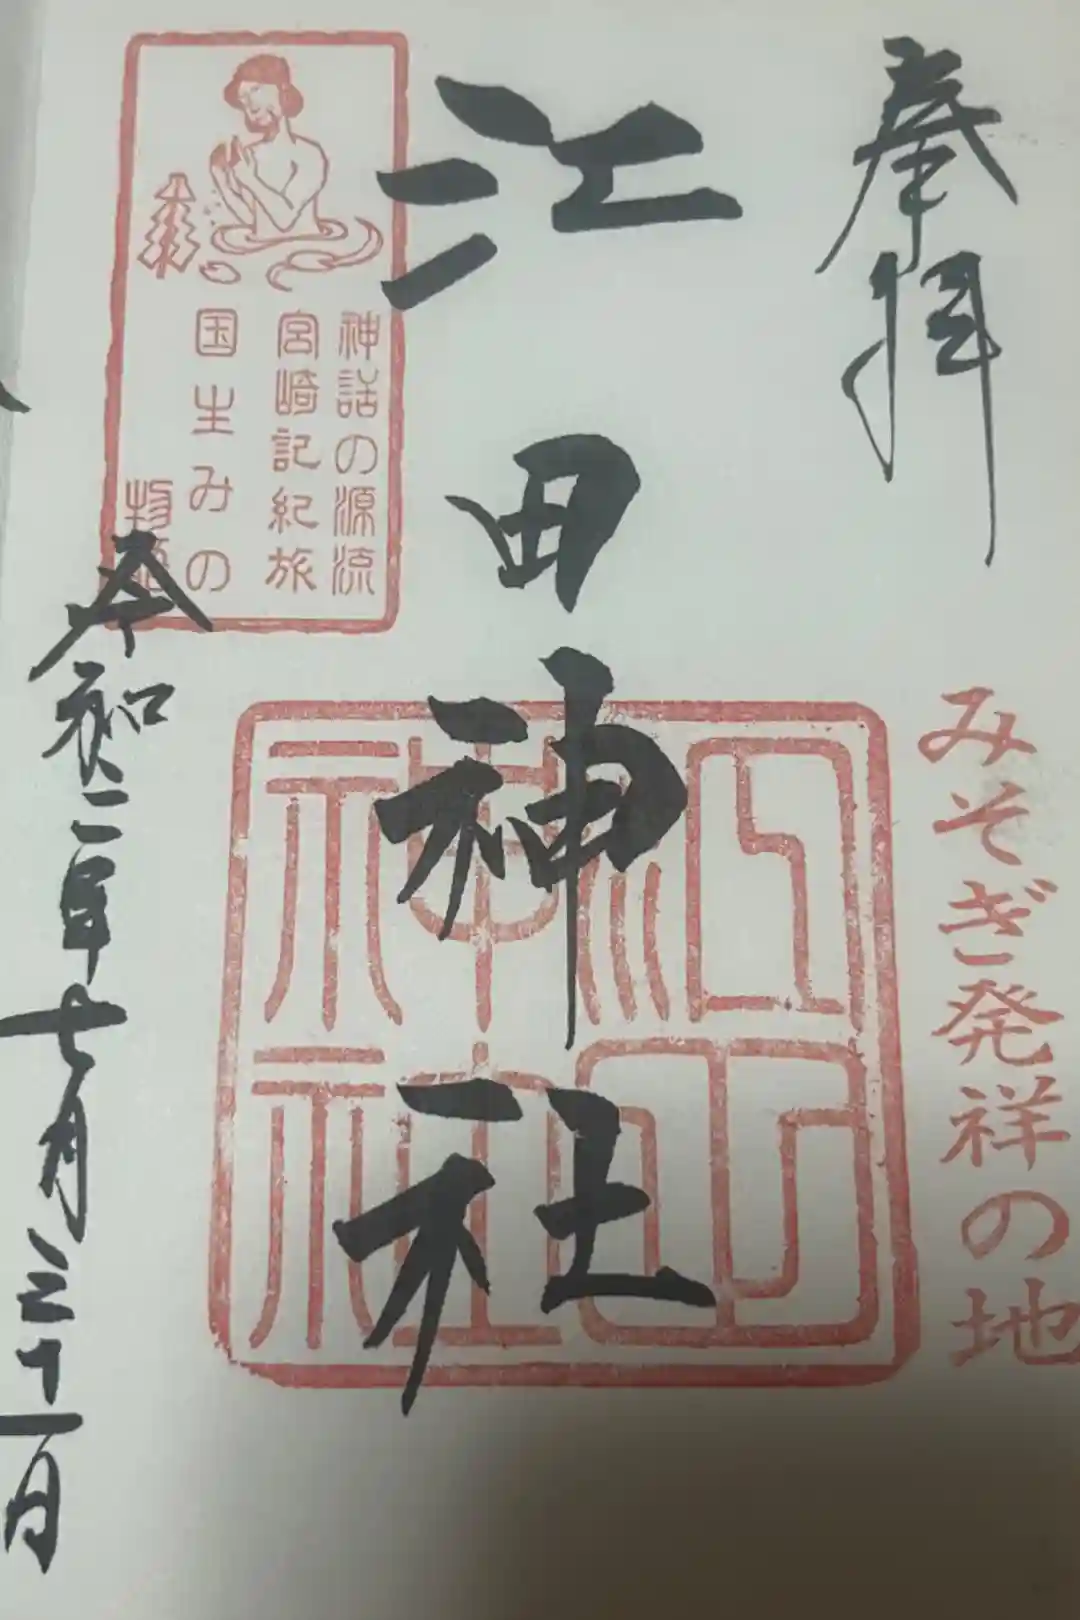 奉拝
みそぎ発祥の地
江田神社
江田神社
神話の源流
宮崎記紀旅
国生みの
物語
令和二年七月三十一日